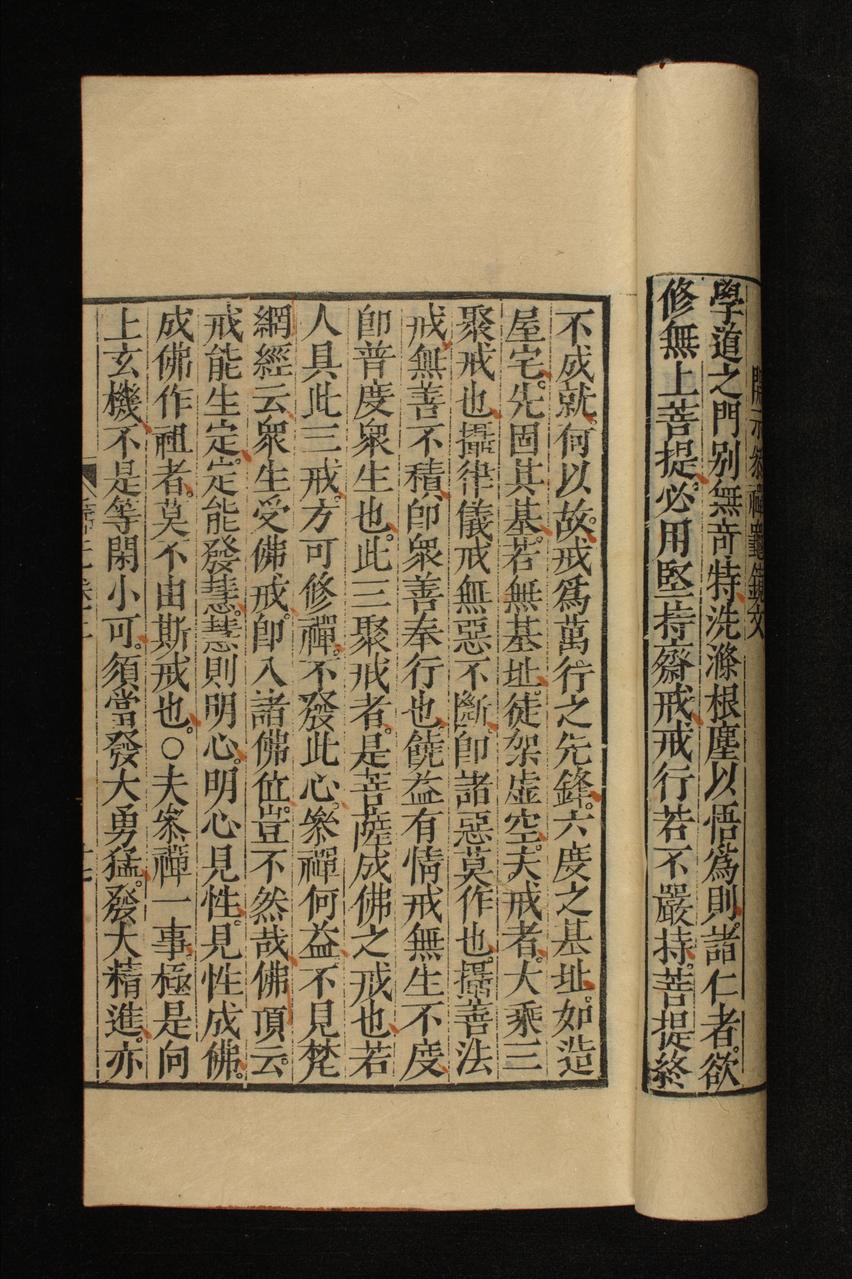 開示叅禪龜鏡文
學道之門别無奇特洗滌根塵以悟爲則。諸仁者。欲
修無上菩提。必用堅持齋戒。戒行若不嚴持。菩提終
不成就。何以故。戒爲萬行之先鋒。六度之基址。如造
屋宅。先固其基。若無基址。徒架虚空。夫戒者。大乘三
聚戒也。攝律儀戒無惡不斷。卽諸惡莫作也。攝善法
戒。無善不積。卽衆善奉行也。饒益有情戒無生不度。
卽普度衆生也。此三聚戒者。是菩薩成佛之戒也。若
人具此三戒。方可修禪。不發此心。叅禪何益。不見梵
網經云。衆生受佛戒。卽入諸佛位。豈不然哉。佛頂云。
戒能生定。定能發慧。慧則明心。明心見性。見性成佛。
成佛作祖者。莫不由斯戒也。○夫叅禪一事。極是向
上玄機。不是等閑小可。須當發大勇猛。發大精進。亦